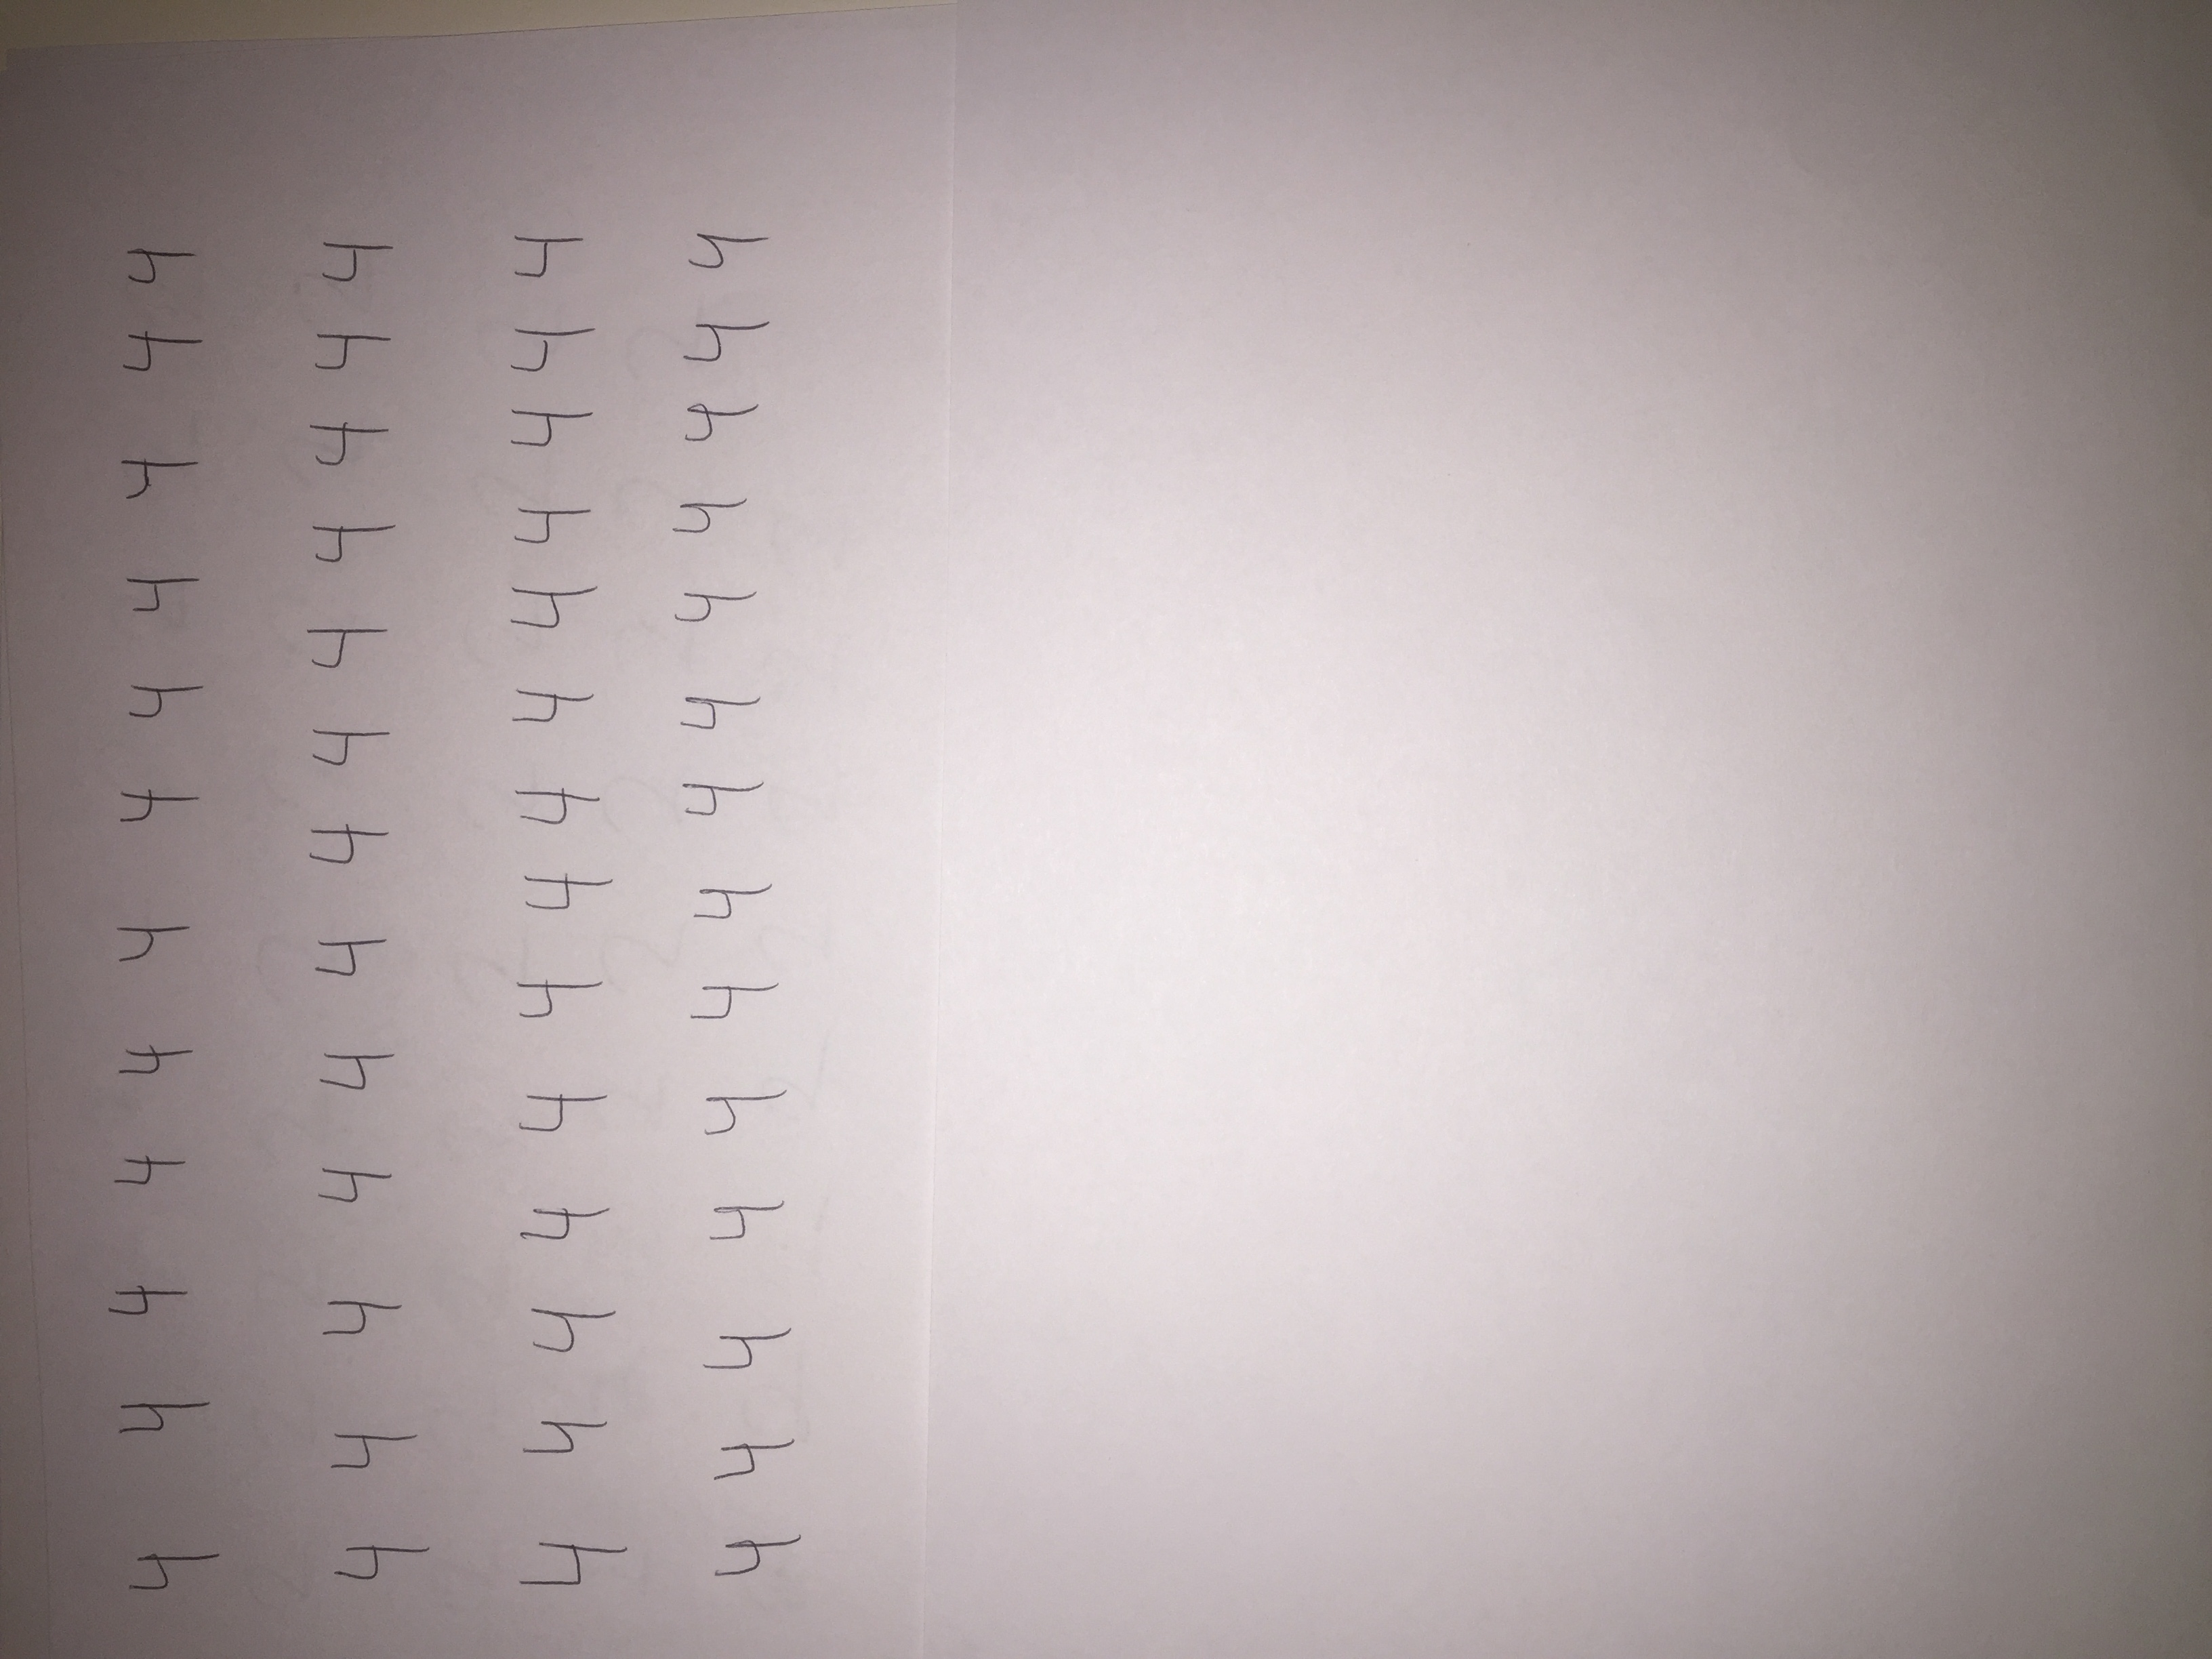 4 4 4 4 4 4 4 4 4 4 4 4
4 4 4 4 4 4 4 4 4 4 4 4 4
4 4 4 4 4 4 4 4 4 4 4 4 4 4
4 4 4 4 4 4 4 4 4 4 4 4 4 4